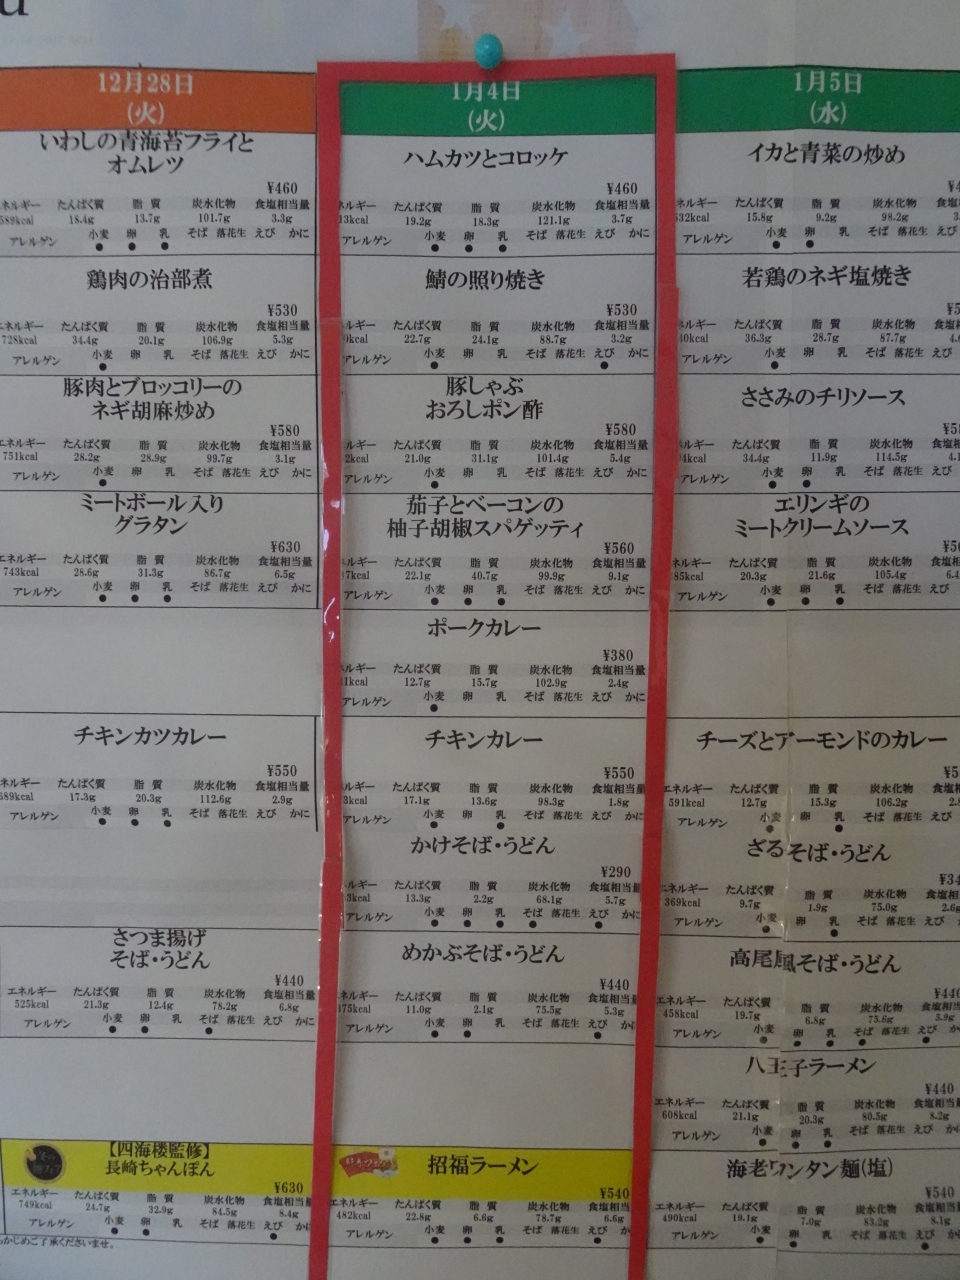 12月28日
(火)
いわしの青海苔フライと
オムレツ
¥460
ネルギー たんぱく質 脂 質 炭水化物 食塩相当量
589kcal 18.4g 13.7g 101.7g 3.3g
アレルゲン 小麦 卵 乳 そば 落花生 えび かに
● ● ●
鶏肉の治部煮
¥530
エネルギー たんぱく質 脂 質 炭水化物 食塩相当量
728kcal 34.4g 20.1g 106.9g 5.3g
アレルゲン 小麦 卵 乳 そば 落花生 えび かに
●
豚肉とブロッコリーの
ネギ胡麻炒め
¥580
エネルギー たんぱく質 脂 質 炭水化物 食塩相当量
751kcal 28.2g 28.9g 99.7g 3.1g
アレルゲン 小麦 卵 乳 そば 落花生 えび かに
●
ミートボール入り
グラタン
¥630
エネルギー たんぱく質 脂 質 炭水化物 食塩相当量
743kcal 28.6g 31.3g 86.7g 6.5g
アレルゲン 小麦 卵 乳 そば 落花生 えび かに
● ● ●
チキンカツカレー
¥550
ネルギー たんぱく質 脂 質 炭水化物 食塩相当量
689kcal 17.3g 20.3g 112.6g 2.9g
アレルゲン 小麦 卵 乳 そば 落花生 えび かに
● ● ●
さつま揚げ
そば・うどん
¥440
エネルギー たんぱく質 脂 質 炭水化物 食塩相当量
525kcal 21.3g 12.4g 78.2g 6.8g
アレルゲン 小麦 卵 乳 そば 落花生 えび かに
● ● ●
【四海楼監修】
長崎ちゃんぽん
¥630
エネルギー たんぱく質 脂 質 炭水化物 食塩相当量
749kcal 24.7g 32.9g 84.5g 8.4g
アレルゲン 小麦 卵 乳 そば 落花生 えび かに
● ● ●
らかじめご了承くださいませ。
1月4日
(火)
ハムカツとコロッケ
¥460
ネルギー たんぱく質 脂 質 炭水化物 食塩相当量
13kcal 19.2g 18.3g 121.1g 3.7g
アレルゲン 小麦 卵 乳 そば 落花生 えび かに
● ● ●
鯖の照り焼き
¥530
ルギー たんぱく質 脂 質 炭水化物 食塩相当量
0kcal 22.7g 24.1g 88.7g 3.2g
アレルゲン 小麦 卵 乳 そば 落花生 えび かに
● ●
豚しゃぶ
おろしポン酢
¥580
ルギー たんぱく質 脂 質 炭水化物 食塩相当量
2kcal 21.0g 31.1g 101.4g 5.4g
アレルゲン 小麦 卵 乳 そば 落花生 えび かに
●
茄子とベーコンの
柚子胡椒スパゲッティ
¥560
ルギー たんぱく質 脂 質 炭水化物 食塩相当量
7kcal 22.1g 40.7g 99.9g 9.1g
アレルゲン 小麦 卵 乳 そば 落花生 えび かに
● ● ●
ポークカレー
¥380
ルギー たんぱく質 脂 質 炭水化物 食塩相当量
1kcal 12.7g 15.7g 102.9g 2.4g
アレルゲン 小麦 卵 乳 そば 落花生 えび かに
●
チキンカレー
¥550
ルギー たんぱく質 脂 質 炭水化物 食塩相当量
3kcal 17.1g 13.6g 98.3g 1.8g
アレルゲン 小麦 卵 乳 そば 落花生 えび かに
● ●
かけそば・うどん
¥290
ルギー たんぱく質 脂 質 炭水化物 食塩相当量
3kcal 13.3g 2.2g 68.1g 5.7g
アレルゲン 小麦 卵 乳 そば 落花生 えび かに
● ● ● ● ●
めかぶそば・うどん
¥440
ネルギー たんぱく質 脂 質 炭水化物 食塩相当量
375kcal 11.0g 2.1g 75.5g 5.3g
アレルゲン 小麦 卵 乳 そば 落花生 えび かに
● ● ● ●
招福ラーメン
¥540
エネルギー たんぱく質 脂 質 炭水化物 食塩相当量
482kcal 22.8g 6.6g 78.7g 6.6g
アレルゲン 小麦 卵 乳 そば 落花生 えび かに
● ● ● ●
1月5日
(水)
イカと青菜の炒め
ネルギー たんぱく質 脂 質 炭水化物 食塩
532kcal 15.8g 9.2g 98.2g
アレルゲン 小麦 卵 乳 そば 落花生 えび
● ●
若鶏のネギ塩焼き
ネルギー たんぱく質 脂 質 炭水化物 食塩
40kcal 36.3g 28.7g 87.7g
アレルゲン 小麦 卵 乳 そば 落花生 えび
●
ささみのチリソース
ネルギー たんぱく質 脂 質 炭水化物 食塩
4kcal 34.4g 11.9g 114.5g
アレルゲン 小麦 卵 乳 そば 落花生 えび
● ●
エリンギの
ミートクリームソース
ネルギー たんぱく質 脂 質 炭水化物 食塩
85kcal 20.3g 21.6g 105.4g
アレルゲン 小麦 卵 乳 そば 落花生 えび
● ● ●
チーズとアーモンドのカレー
エネルギー たんぱく質 脂 質 炭水化物 食塩
591kcal 12.7g 15.3g 106.2g
アレルゲン 小麦 卵 乳 そば 落花生 えび
● ●
ざるそば・うどん
エネルギー たんぱく質 脂 質 炭水化物 食塩相
369kcal 9.7g 1.9g 75.0g 2.6g
アレルゲン 小麦 卵 乳 そば 落花生 えび
● ●
高尾風そば・うどん
¥440
エネルギー たんぱく質 脂 質 炭水化物 食塩相
458kcal 19.7g 6.8g 75.6g 5.9g
アレルゲン 小麦 卵 乳 そば 落花生 えび
● ● ● ● ●
八王子ラーメン
¥440
エネルギー たんぱく質 脂 質 炭水化物 食塩相
608kcal 21.1g 20.3g 80.5g 8.2g
アレルゲン 小麦 卵 乳 そば 落花生 えび
● ● ●
海老ワンタン麺(塩)
¥540
エネルギー たんぱく質 脂 質 炭水化物 食塩相
490kcal 19.1g 7.0g 83.2g 8.1g
アレルゲン 小麦 卵 乳 そば 落花生 えび
● ● ●